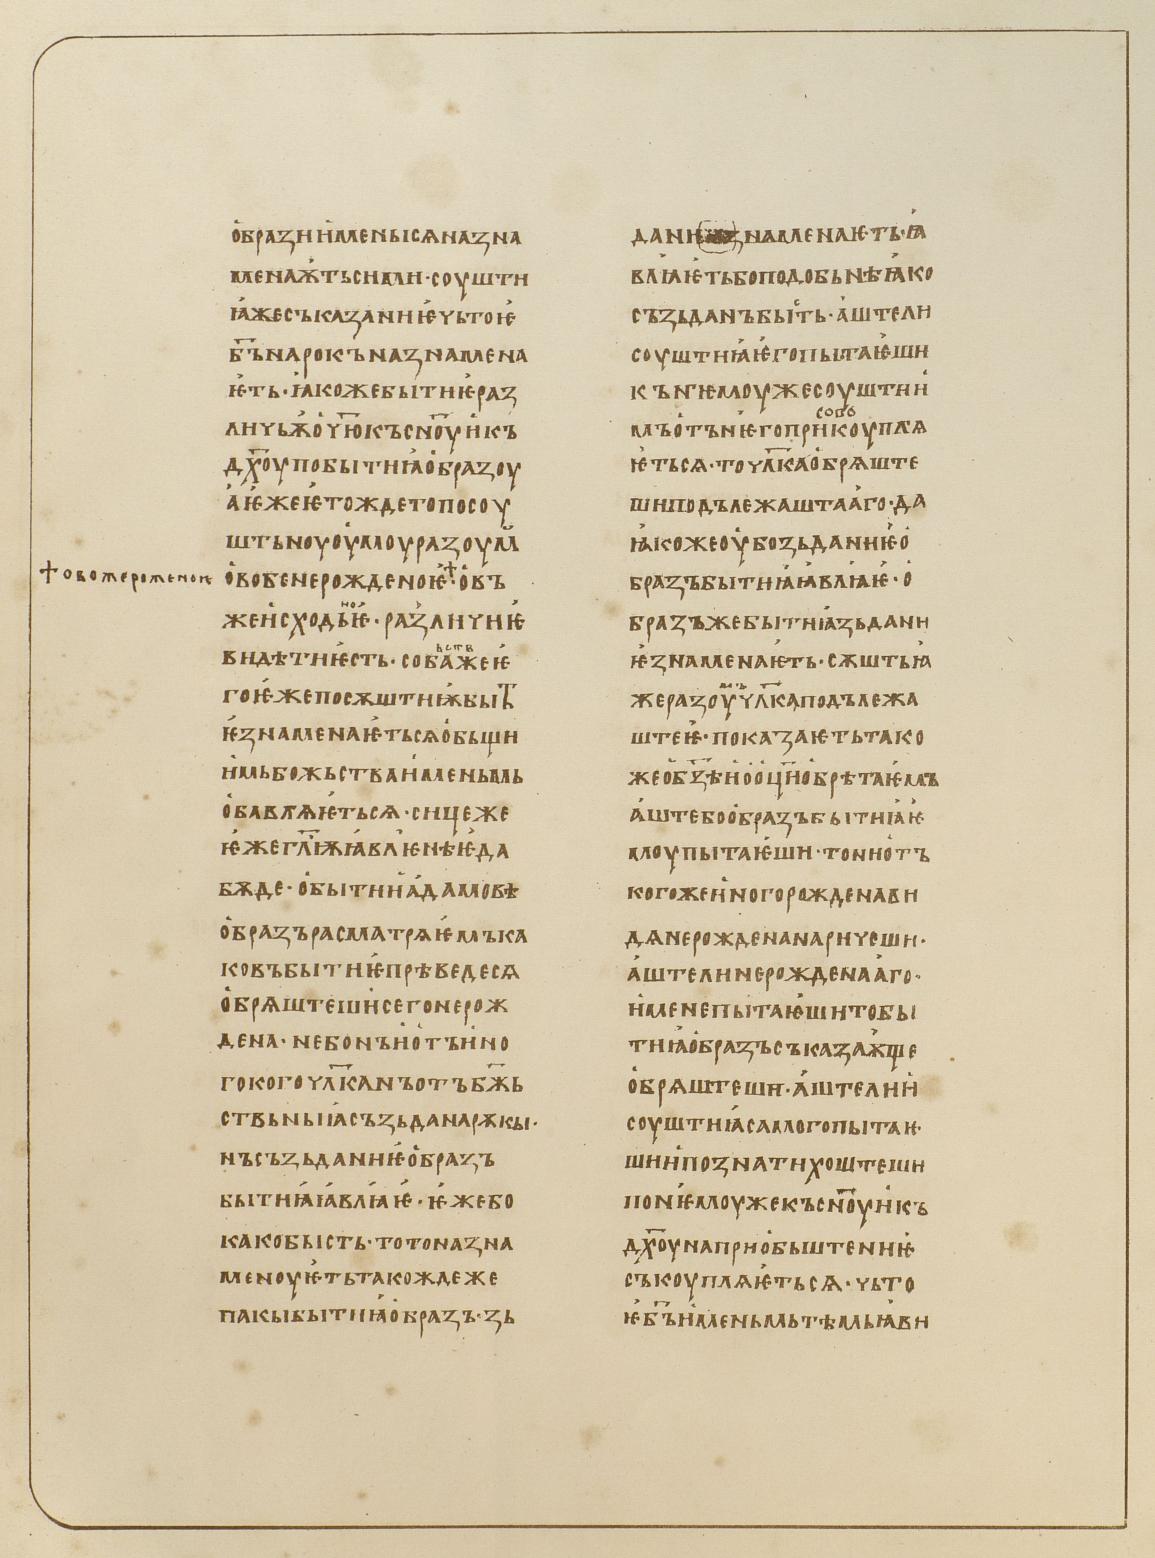 ѡбразниименьісѧназна
менаѫтьсними·соушти
ꙗжесъказаниѥчьтоѥ
б҃ънарокъназнамена
ѥть·ꙗкожебытиѥраз
личьжоо҃ч҃юкъсн҃оуикъ
дх҃оупобытиꙗобразоу
аѥжеѥтождетопосоу
штьноуоумоуразоум
обобенерожденоѥ·овъ
✝овожероженоѥ
жеисходьноѥ·различиѥ
видѣтиѥсть·собьстважеѥ
гоѥжепосѫштиѭбыт
ѥзнаменаѥтьсѧобьщи
имьбожьстваименьмь
обавлꙗѥтьсѧ·сицеже
ѥжегл҃ѭꙗвлѥнѣѥда
бѫде·обытииадамовѣ
образърасматрѧѥмъка
ковъбытиѥпрѣведесѧ
обрѧштешисегонерож
дена·небонъиотъино
гокогочл҃канъотъбж҃ь
ствьныꙗсъзьданарѫкы·
нъсъзьданиѥобразъ
бытиꙗꙗвлꙗѥ·ѥжебо
какобысть·тотоназна
меноуѥтьтакождеже
пакыбытиꙗобразъ·зь
даниѥзнаменаѥть·ꙗ
влꙗѥтьбоподобьнѣꙗко
съзьданъбысть·аштели
соуштиꙗѥгопытаѥши
кън҄ѥмоужесоуштии
мъотън҄ѥгоприсобькоуплꙗ
ѥтьсѧ·точл҃каобрѧште
шиподълежаштааго·да
ꙗкожеоубозьданиѥо
бразъбытиꙗꙗвлꙗѥ·о
бразъжебытиꙗзьдани
ѥзнаменаѥть·сѫштьꙗ
жеразоумъчл҃каподълежа
штеѥ·показаѥтьтако
жеобз҃ѣиооци҃обрѣтаѥмъ
аштебообразъбытиꙗѥ
моупытаѥши·тониотъ
когожеиногорожденави
дѧнерожденанаричеши·
аштелинерожденааго·
именепытаѥшитобы
тиꙗобразъсъказаѫще
обрѧштеши·аштелии
соуштиꙗсамогопытаѥ
шиипознатихоштеши
пон҄ѥмоужекъсн҃оуикъ
дх҃оунаприобьштениѥ
съкоуплꙗѥтьсѧ·чьто
ѥб҃ъименьмьтѣмьꙗви